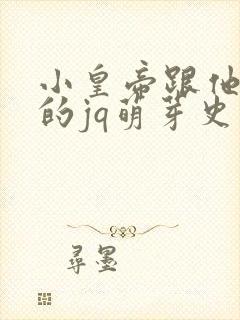 小皇帝跟他
的jq萌芽史
尋墨